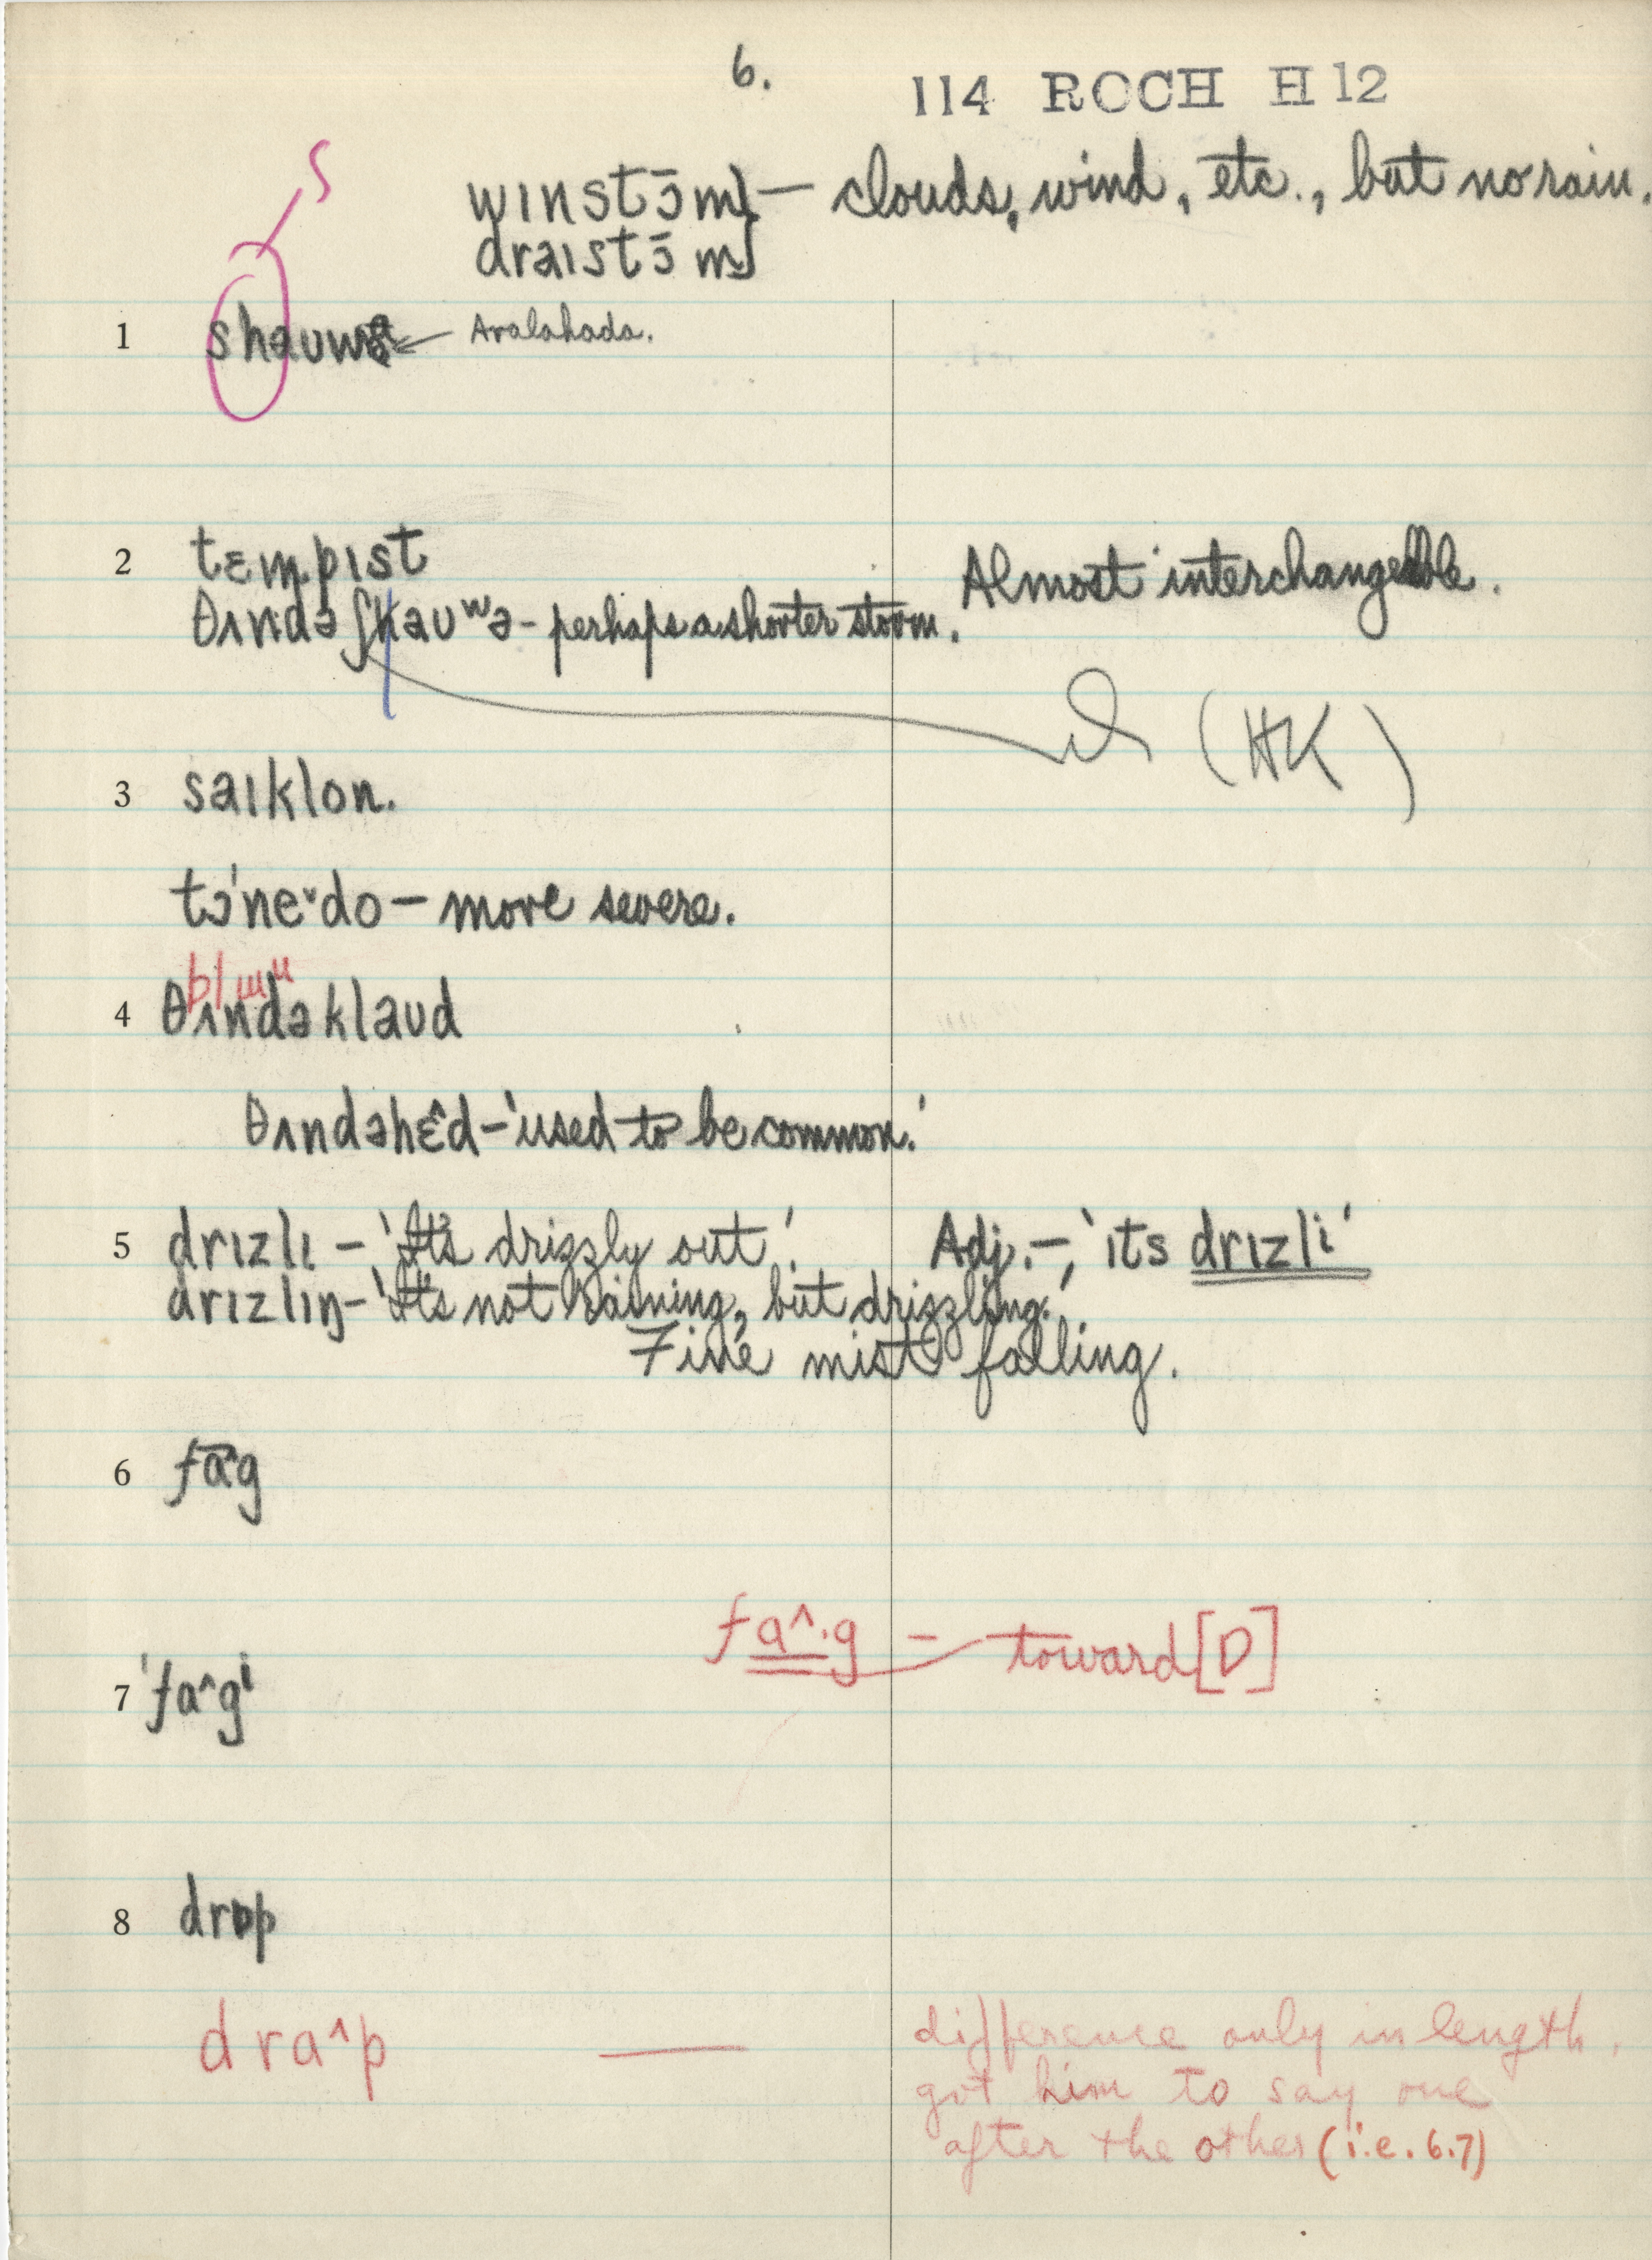 6.
114 ROCH H 12
ʃ
wɪnstɔ̄m} — clouds, wind, etc., but no rain.
draɪstɔ̄m}
1 shauwə ← Aralahada.
2 tɛmpɪst
Almost interchangeable.
θʌndəʃhauʷə - perhaps a shorter storm.
(HK)
3 saɪklon.
tɔ'neˇdo — more severe.
pl ɯu
4 θʌndəklaud
θʌndəhɛ̂d - 'used to be common.'
5 drɪzlɪ — 'It's drizzly out'. Adj. —, 'ɪts drɪzli'
drɪzlɪŋ - 'It's not raining, but drizzling.'
Fine mist falling.
6 fāg
fa^·g — toward [ɒ]
7 'fa^gi
8 drɒp
dra^p — difference only in length,
got him to say one
after the other (i.e. 6.7)